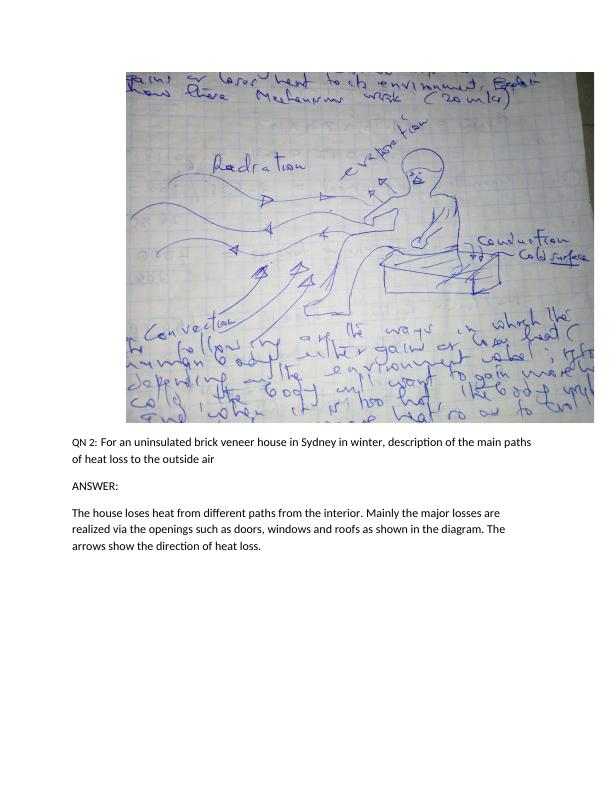 gains or loses heat to its environment. Explain
how these Mechanisms work (20 mks)
evaporation
Radiation
Conduction
Cold surface
Convection
the following are the ways in which the
human body either gains or loses heat (
depending on the environment
cold, the body will want to gain more
and when it is too hot, the body will
heat so as to
QN 2: For an uninsulated brick veneer house in Sydney in winter, description of the main paths
of heat loss to the outside air
ANSWER:
The house loses heat from different paths from the interior. Mainly the major losses are
realized via the openings such as doors, windows and roofs as shown in the diagram. The
arrows show the direction of heat loss.